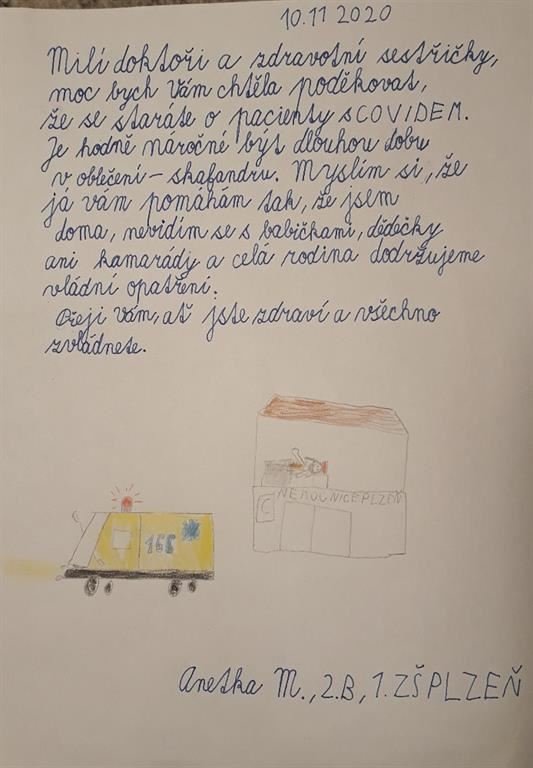 10.11 2020
Milí doktoři a zdravotní sestřičky,
moc bych Vám chtěla poděkovat,
že se staráte o pacienty s COVIDEM.
Je hodně náročné být dlouhou dobu
v oblečení - skafandru. Myslím si, že
já vám pomáhám tak, že jsem
doma, nevidím se s babičkami, dědečky
ani kamarády a celá rodina dodržujeme
vládní opatření.
Přeji Vám, ať jste zdraví a všechno
zvládnete.
NEMOCNICE PLZEŇ
C
155
Anetka M., 2.B, 1. ZŠ PLZEŇ